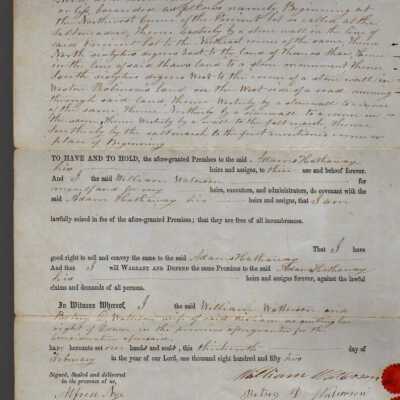 or less, bounded as follows namely Beginning at
the Northwest corner of the Parment lot so called, at the
Saltmeadow, thence Easterly by a stone wall in line of
said Parment lot to the Northeast corner of the same, thence
North sixty degrees East to the land of Thomas
in the line of said land to a stone monument thence
South sixty degrees West to the corner of a stone wall in
Weston Robinsons land on the West side of a road running
through said land, thence Westerly by a stone wall to a corner
of the same, thence Northerly by a stone wall to a corner in
the same, thence Westerly by a wall to the salt marsh, thence
Southerly by the salt marsh to the first mentioned corner or
place of Beginning
TO HAVE AND TO HOLD, the afore-granted Premises to the said Adams Hathaway
his heirs and assigns, to their use and behoof forever.
And I the said William Waterson for
myself and for my heirs, executors, and administrators, do covenant with the
said Adams Hathaway his heirs and assigns, that I am
lawfully seized in fee of the afore-granted Premises; that they are free of all incumbrances.
That I have
good right to sell and convey the same to the said Adams Hathaway
And that I will WARRANT AND DEFEND the same Premises to the said Adams Hathaway
his heirs and assigns forever, against the lawful
claims and demands of all persons.
In Witness Whereof, I the said William Watterson and
Betsey D. Waterson wife of said William
right of Dower in the premises aforegranted for the
consideration aforesaid
have hereunto set our hands and seals, this thirteenth day of
February in the year of our Lord, one thousand eight hundred and fifty two
Signed, Sealed and delivered
in the presence of us,
William Waterson
Alfred Nye
Betsey D Waterson